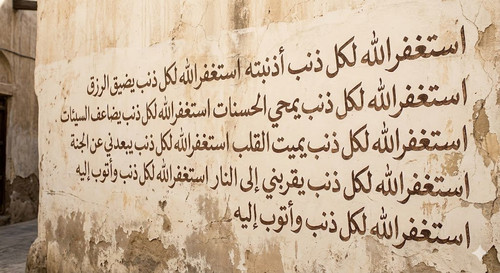 استغفر الله لكل ذنب أذنبته استغفر الله لكل ذنب يضيق الرزق
استغفر الله لكل ذنب يمحي الحسنات استغفر الله لكل ذنب يضاعف السيئات
استغفر الله لكل ذنب يميت القلب استغفر الله لكل ذنب يبعدني عن الجنة
استغفر الله لكل ذنب يقربني إلى النار استغفر الله لكل ذنب وأتوب إليه
استغفر الله لكل ذنب وأتوب إليه